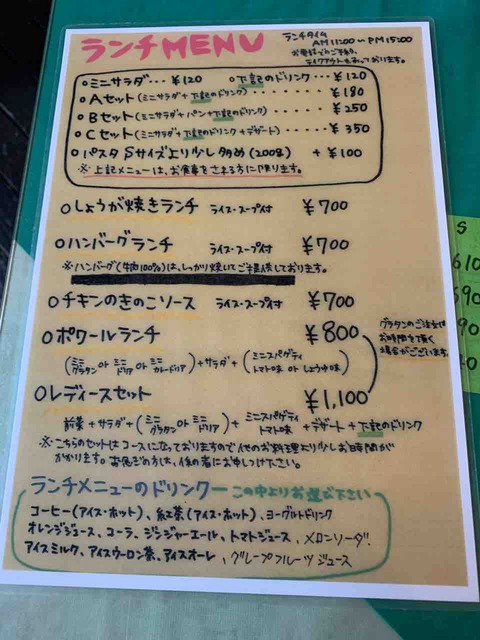 ランチMENU
ランチタイム
AM11:00~PM15:00
お電話でのご予約、
テイクアウトもあっております。
○ミニサラダ・・・¥120 ○下記のドリンク・・・¥120
○Aセット(ミニサラダ+下記のドリンク)・・・・・・・¥180
○Bセット(ミニサラダ+パン+下記のドリンク)・・・・・¥250
○Cセット(ミニサラダ+下記のドリンク+デザート)・・・・・¥350
○パスタSサイズより少し多め(200g) +¥100
※上記メニューは、お食事をされる方に限ります。
○しょうが焼きランチ ライス・スープ付 ¥700
○ハンバーグランチ ライス・スープ付 ¥700
※ハンバーグ(牛肉100%)は、しっかり焼いてご提供しております。
○チキンのきのこソース ライス・スープ付 ¥700
○ポワールランチ ¥800
(ミニグラタン or ミニドリア or ミニカレードリア)+サラダ+(ミニスパゲティトマト味 or しょうゆ味)
グラタンのご注文は
お時間を頂く
場合がございます。
○レディースセット ¥1,100
前菜+サラダ+(ミニグラタン or ミニドリア)+ミニスパゲティトマト味+デザート+下記のドリンク
※こちらのセットはコースになっておりますので他のお料理より少しお時間が
かかります。お急ぎの方は、係の者にお申しつけ下さい。
ランチメニューのドリンク この中よりお選び下さい
コーヒー(アイス・ホット)、紅茶(アイス・ホット)、ヨーグルトドリンク
オレンジジュース、コーラ、ジンジャーエール、トマトジュース、メロンソーダ
アイスミルク、アイスウーロン茶、アイスオーレ、グレープフルーツジュース
S
610